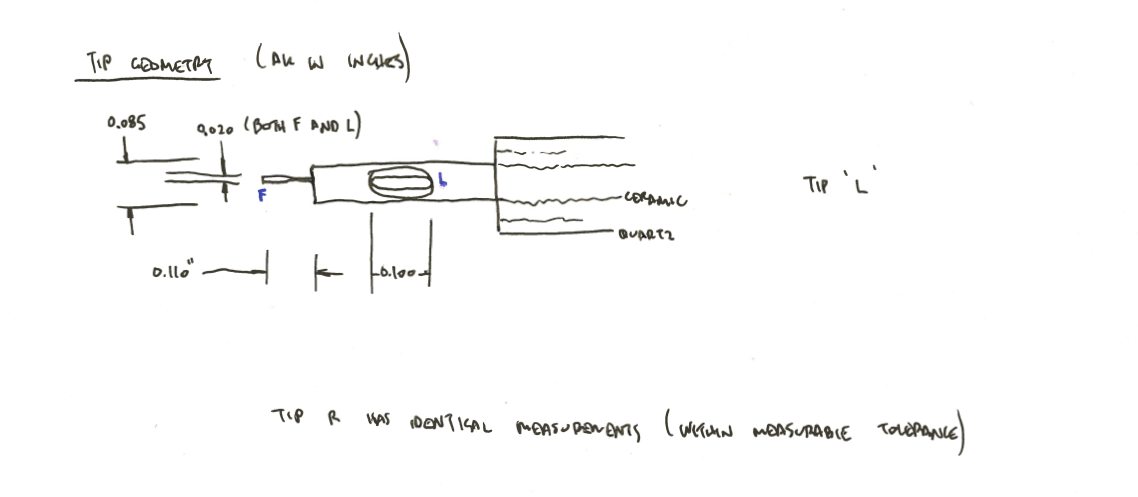 TIP GEOMETRY (ALL IN INCHES)
0.085
0.020 (BOTH F AND L)
F
L
TIP 'L'
CERAMIC
QUARTZ
0.110"
0.100
TIP R HAS IDENTICAL MEASUREMENTS (WITHIN MEASURABLE TOLERANCE)